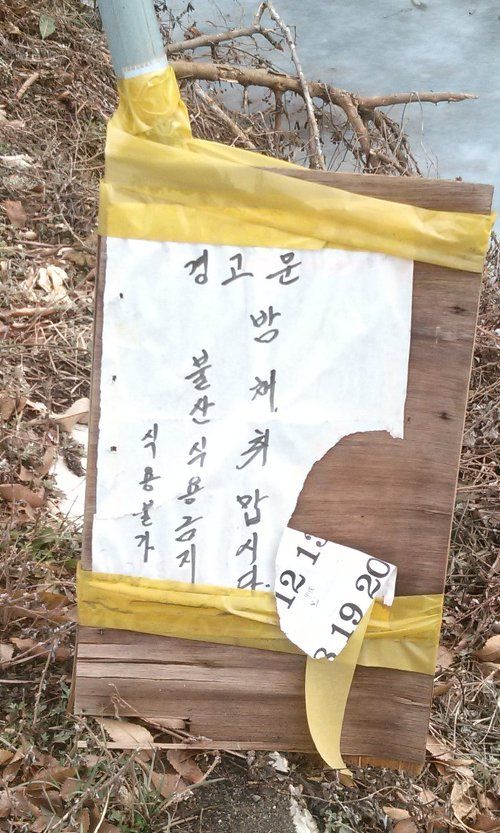 경고문
밤채취맙시다.
불산식용금지
식용불가
12 13
19 20